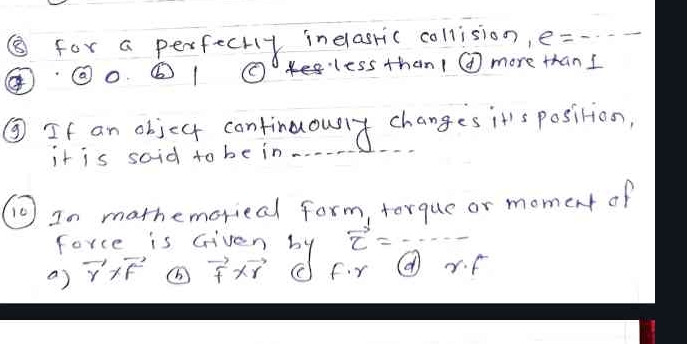 ⑧ For a perfectly inelastic collision, e = -----
ⓐ 0. ⓑ 1 ⓒ less than 1 ⓓ more than 1
⑨ If an object continuously changes it's position,
it is said to be in ----------
⑩ In mathematical form, torque or moment of
force is Given by τ⃗ = -----
a) r⃗×F⃗ ⓑ F⃗×r⃗ ⓒ f.r ⓓ r.f